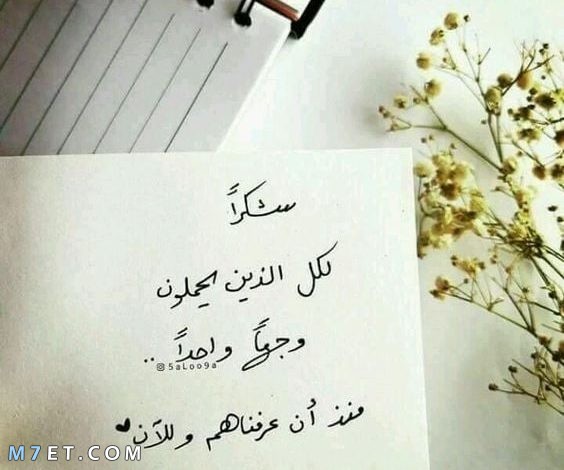 شكراً
لكل الذين يحملون
وجهاً واحداً ..
@5aLoo9a
منذ أن عرفناهم وللآن
M7ET.COM